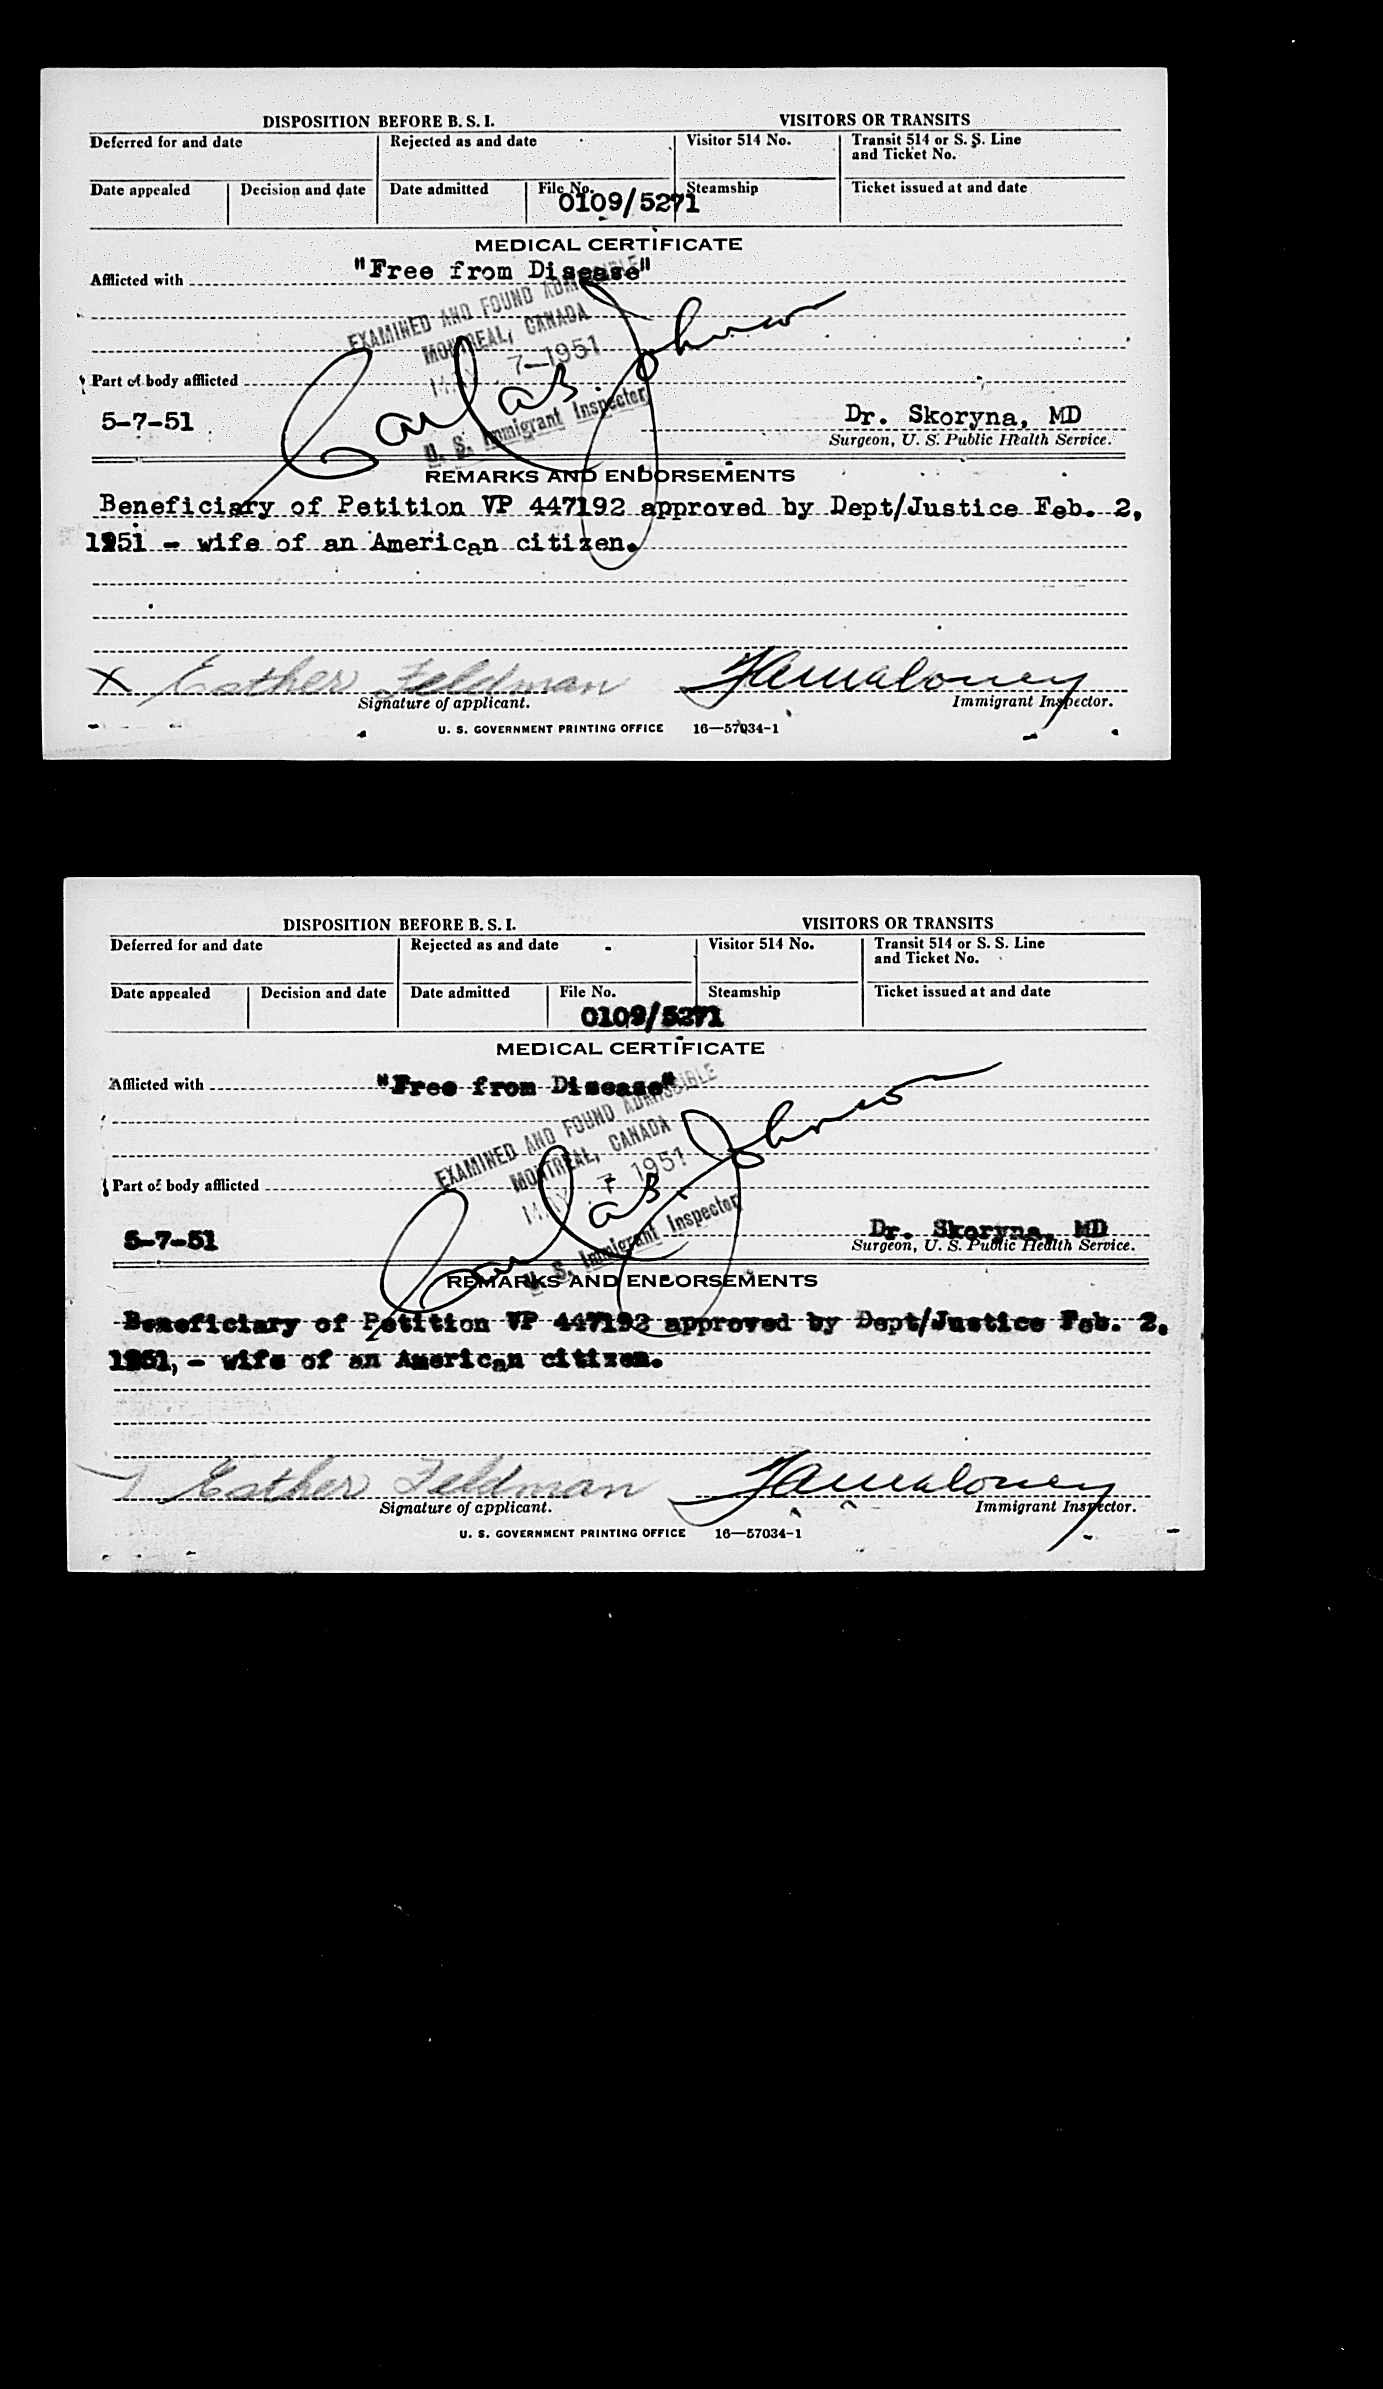 DISPOSITION BEFORE B. S. I.
VISITORS OR TRANSITS
Deferred for and date
Rejected as and date
Visitor 514 No.
Transit 514 or S. S. Line
and Ticket No.
Date appealed
Decision and date
Date admitted
File No.
0109/5271
Steamship
Ticket issued at and date
MEDICAL CERTIFICATE
Afflicted with "Free from Disease"
EXAMINED AND FOUND ADMISSIBLE
MONTREAL, CANADA
MAY 7-1951
Carl B Johnson
U. S. Immigrant Inspector
Part of body afflicted
5-7-51
Dr. Skoryna, MD
Surgeon, U. S. Public Health Service.
REMARKS AND ENDORSEMENTS
Beneficiary of Petition VP 447192 approved by Dept/Justice Feb. 2,
1951 - wife of an American citizen.
X Esther Feldman
Signature of applicant.
Immigrant Inspector.
U. S. GOVERNMENT PRINTING OFFICE 16—57034-1
DISPOSITION BEFORE B. S. I.
VISITORS OR TRANSITS
Deferred for and date
Rejected as and date
Visitor 514 No.
Transit 514 or S. S. Line
and Ticket No.
Date appealed
Decision and date
Date admitted
File No.
0109/5271
Steamship
Ticket issued at and date
MEDICAL CERTIFICATE
Afflicted with "Free from Disease"
EXAMINED AND FOUND ADMISSIBLE
MONTREAL, CANADA
MAY 7 1951
Carl B Johnson
U. S. Immigrant Inspector
Part of body afflicted
5-7-51
Dr. Skoryna, MD
Surgeon, U. S. Public Health Service.
REMARKS AND ENDORSEMENTS
Beneficiary of Petition VP 447192 approved by Dept/Justice Feb. 2,
1951, - wife of an American citizen.
Esther Feldman
Signature of applicant.
Immigrant Inspector.
U. S. GOVERNMENT PRINTING OFFICE 16—57034-1